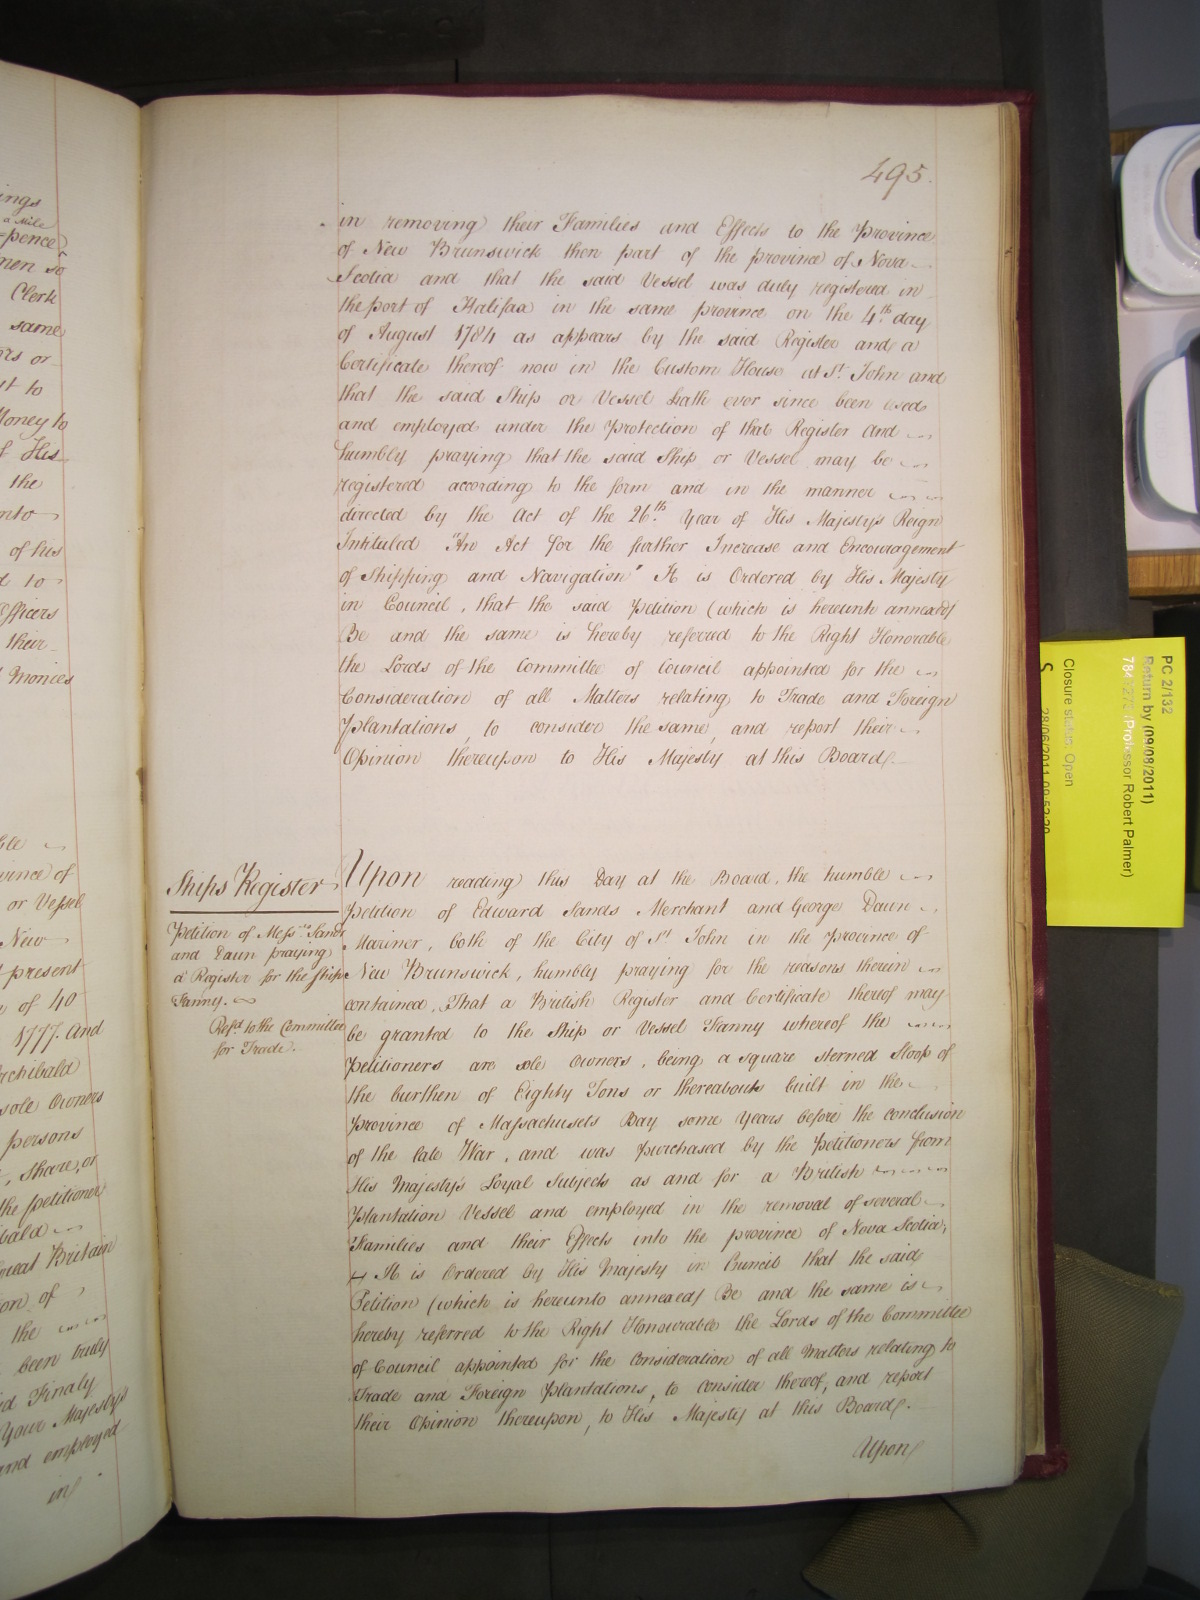 ings
a Mile
=pence
men so
Clerk
same
ors or
ut to
Money to
f His
the
nto
of his
d to
Officers
their
Monies
ble
vince of
or Vessel
New
present
of 40
1777. and
rchibald
sole Owners
persons
, Share, or
the petitioner
bald
Great Britain
ion of
the
been truly
id Finaly
Your Majesty's
and employed
in
495.
in removing their Families and Effects to the Province
of New Brunswick then part of the province of Nova
Scotia and that the said Vessel was duly registered in
the port of Halifax in the same province on the 4th day
of August 1784 as appears by the said Register and a
Certificate thereof now in the Custom House at St. John and
that the said Ship or Vessel hath ever since been used
and employed under the Protection of that Register And
humbly praying that the said Ship or Vessel may be
registered according to the form and in the manner
directed by the Act of the 26th Year of His Majesty's Reign
Intituled "An Act for the further Increase and Encouragement
of Shipping and Navigation" It is Ordered by His Majesty
in Council, that the said Petition (which is hereunto annexed)
Be and the same is hereby referred to the Right Honorable
the Lords of the Committee of Council appointed for the
Consideration of all Matters relating to Trade and Foreign
Plantations, to consider the same, and report their
Opinion thereupon to His Majesty at this Board.
Ships Register
Petition of Messrs. Sands
and Daun praying
a Register for the ship
Fanny.
Refd. to the Committee
for Trade.
Upon reading this Day at the Board, the humble
Petition of Edward Sands Merchant and George Daun
Mariner, both of the City of St. John in the Province of
New Brunswick, humbly praying for the reasons therein
contained, That a British Register and Certificate thereof may
be granted to the Ship or Vessel Fanny whereof the
Petitioners are sole Owners, being a square sterned Sloop of
the burthen of Eighty Tons or thereabouts built in the
Province of Massachusets Bay some Years before the conclusion
of the late War, and was purchased by the Petitioners from
His Majesty's Loyal Subjects as and for a British
Plantation Vessel and employed in the removal of several
Families and their Effects into the province of Nova Scotia;
It is Ordered by His Majesty in Council that the said
Petition (which is hereunto annexed) Be and the same is
hereby referred to the Right Honourable the Lords of the Committee
of Council appointed for the Consideration of all Matters relating to
Trade and Foreign Plantations, to consider thereof, and report
their Opinion thereupon, to His Majesty at this Board.
Upon
PC 2/132
Return by (09/08/2011)
(Professor Robert Palmer)
Closure status: Open